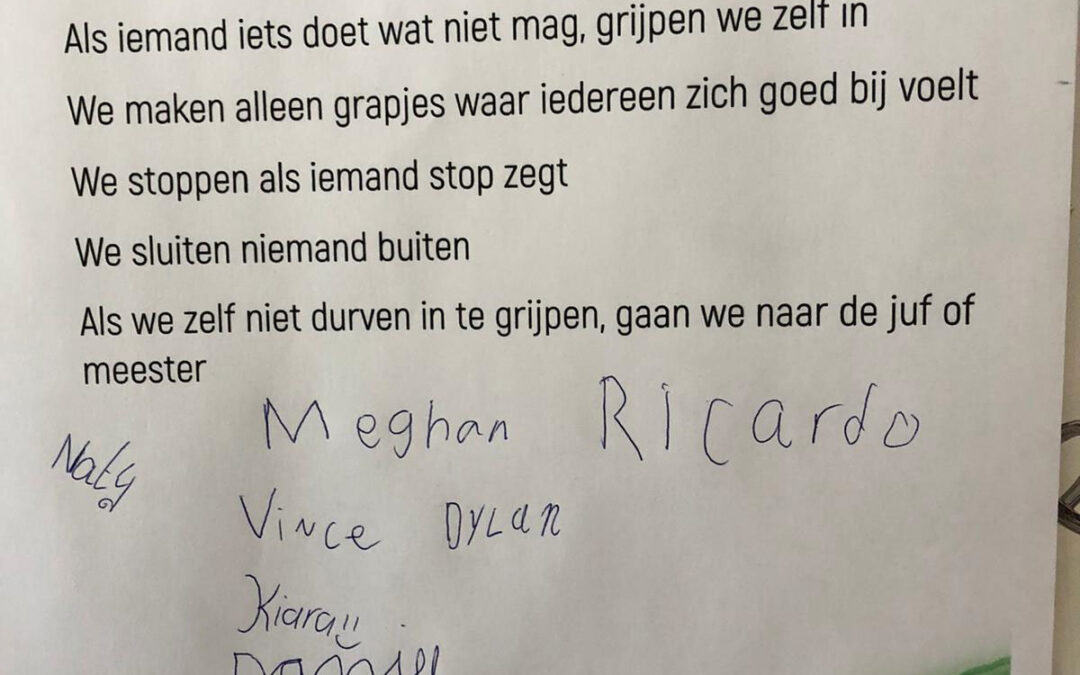 Als iemand iets doet wat niet mag, grijpen we zelf in
We maken alleen grapjes waar iedereen zich goed bij voelt
We stoppen als iemand stop zegt
We sluiten niemand buiten
Als we zelf niet durven in te grijpen, gaan we naar de juf of
meester
Meghan Ricardo
Naty
Vince DYLan
Kiara